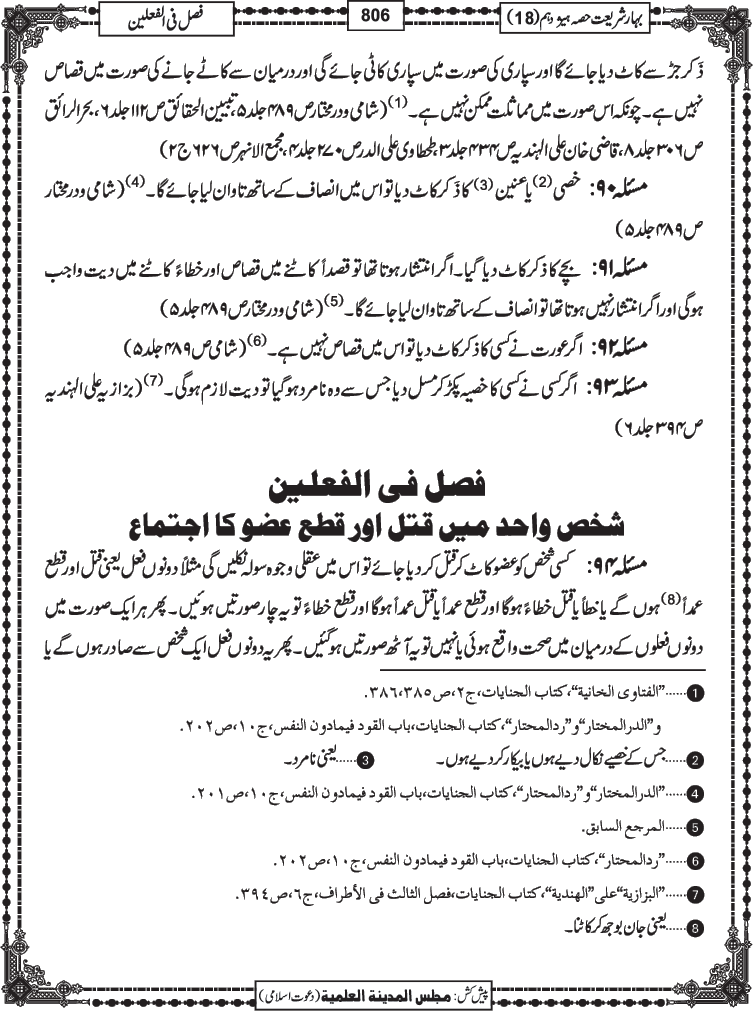 بہارشریعت حصہ ہیژدہم (18)
806
فصل فی الفعلین
ذَکر جڑ سے کاٹ دیا جائے گا اور سپاری کی صورت میں سپاری کاٹی جائے گی اور درمیان سے کاٹے جانے کی صورت میں قصاص
نہیں ہے۔ چونکہ اس صورت میں مماثلت ممکن نہیں ہے۔(1) (شامی ودرمختار ص ۴۸۹ جلد ۵، تبیین الحقائق ص ۱۱۲ جلد ۶، بحرالرائق
ص ۳۰۶ جلد ۸، قاضی خان علی الہندیہ ص ۴۳۴ جلد ۳، طحطاوی علی الدر ص ۲۷۰ جلد ۴، مجمع الانہر ص ۶۲۶ ج ۲)
مسئلہ ۹۰: خصی(2) یا عنین(3) کا ذکر کاٹ دیا تو اس میں انصاف کے ساتھ تاوان لیا جائے گا۔(4) (شامی ودرمختار
ص ۴۸۹ جلد ۵)
مسئلہ ۹۱: بچے کا ذکر کاٹ دیا گیا۔ اگر انتشار ہوتا تھا تو قصداً کاٹنے میں قصاص اور خطاءً کاٹنے میں دیت واجب
ہوگی اور اگر انتشار نہیں ہوتا تھا تو انصاف کے ساتھ تاوان لیا جائے گا۔(5) (شامی ودرمختار ص ۴۸۹ جلد ۵)
مسئلہ ۹۲: اگر عورت نے کسی کا ذکر کاٹ دیا تو اس میں قصاص نہیں ہے۔(6) (شامی ص ۴۸۹ جلد ۵)
مسئلہ ۹۳: اگر کسی نے کسی کا خصیہ پکڑ کر مسل دیا جس سے وہ نامرد ہوگیا تو دیت لازم ہوگی۔(7) (بزازیہ علی الہندیہ
ص ۳۹۴ جلد ۶)
فصل فی الفعلین
شخص واحد میں قتل اور قطع عضو کا اجتماع
مسئلہ ۹۴: کسی شخص کو عضو کاٹ کر قتل کر دیا جائے تو اس میں عقلی وجوہ سولہ نکلیں گی مثلاً دونوں فعل یعنی قتل اور قطع
عمداً(8) ہوں گے یا خطاً یا قتل خطاءً ہوگا اور قطع عمداً یا قتل عمداً ہوگا اور قطع خطاءً تو یہ چار صورتیں ہوئیں۔ پھر ہر ایک صورت میں
دونوں فعلوں کے درمیان میں صحت واقع ہوئی یا نہیں تو یہ آٹھ صورتیں ہوگئیں۔ پھر یہ دونوں فعل ایک شخص سے صادر ہوں گے یا
1......”الفتاوی الخانیة“، کتاب الجنایات، ج۲، ص۳۸۵،۳۸۶.
و”الدرالمختار“و”ردالمحتار“، کتاب الجنایات، باب القود فیمادون النفس، ج۱۰، ص۲۰۲.
2......جس کے خصیے نکال دیے ہوں یا بیکار کر دیے ہوں۔ 3......یعنی نامرد۔
4......”الدرالمختار“و”ردالمحتار“، کتاب الجنایات، باب القود فیمادون النفس، ج۱۰، ص۲۰۱.
5......المرجع السابق.
6......”ردالمحتار“، کتاب الجنایات، باب القود فیمادون النفس، ج۱۰، ص۲۰۲.
7......”البزازیة“علی”الهندیة“، کتاب الجنایات، فصل الثالث فی الأطراف، ج۶، ص۳۹۴.
8......یعنی جان بوجھ کر کاٹنا۔
پیش کش: مجلس المدینة العلمیة (دعوت اسلامی)